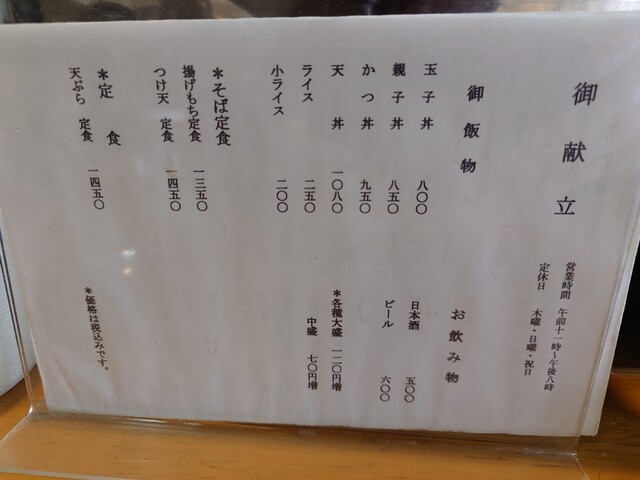 御献立
営業時間 午前十一時～午後八時
定休日 木曜・日曜・祝日
御飯物
玉子丼 八〇〇
親子丼 八五〇
かつ丼 九五〇
天丼 一〇八〇
ライス 二五〇
小ライス 二〇〇
＊そば定食
揚げもち定食 一三五〇
つけ天 定食 一四五〇
＊定食
天ぷら 定食 一四五〇
お飲み物
日本酒 五〇〇
ビール 六〇〇
＊各種大盛 一二〇円増
中盛 七〇円増
＊価格は税込みです。